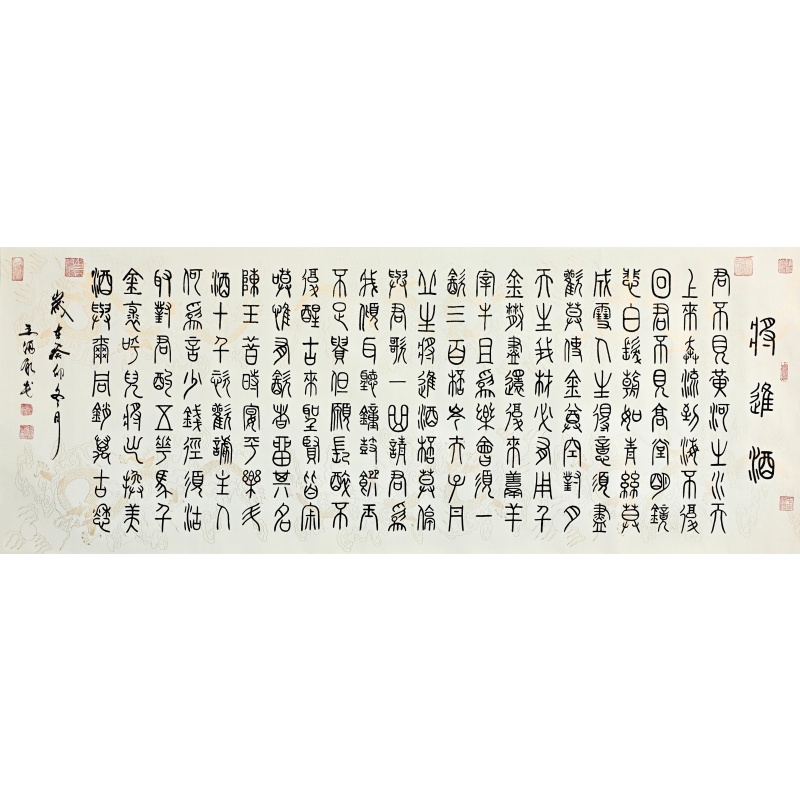 將進酒
君不見黃河之水天
上來奔流到海不復
回君不見高堂明鏡
悲白髮朝如青絲莫
成雪人生得意須盡
歡莫使金尊空對月
天生我材必有用千
金散盡還復來羹羊
宰牛且為樂會須一
飲三百杯岑夫子丹
丘生將進酒杯莫停
與君歌一曲請君為
我傾耳聽鐘鼓饌玉
不足貴但願長醉不
復醒古來聖賢皆宋
嘆惟有飲者留其名
陳王昔時宴平樂斗
酒十千恣歡謔主人
何為言少錢徑須沽
取對君酌五花馬千
金裘呼兒將出換美
酒與爾同銷萬古愁
歲在癸卯冬月